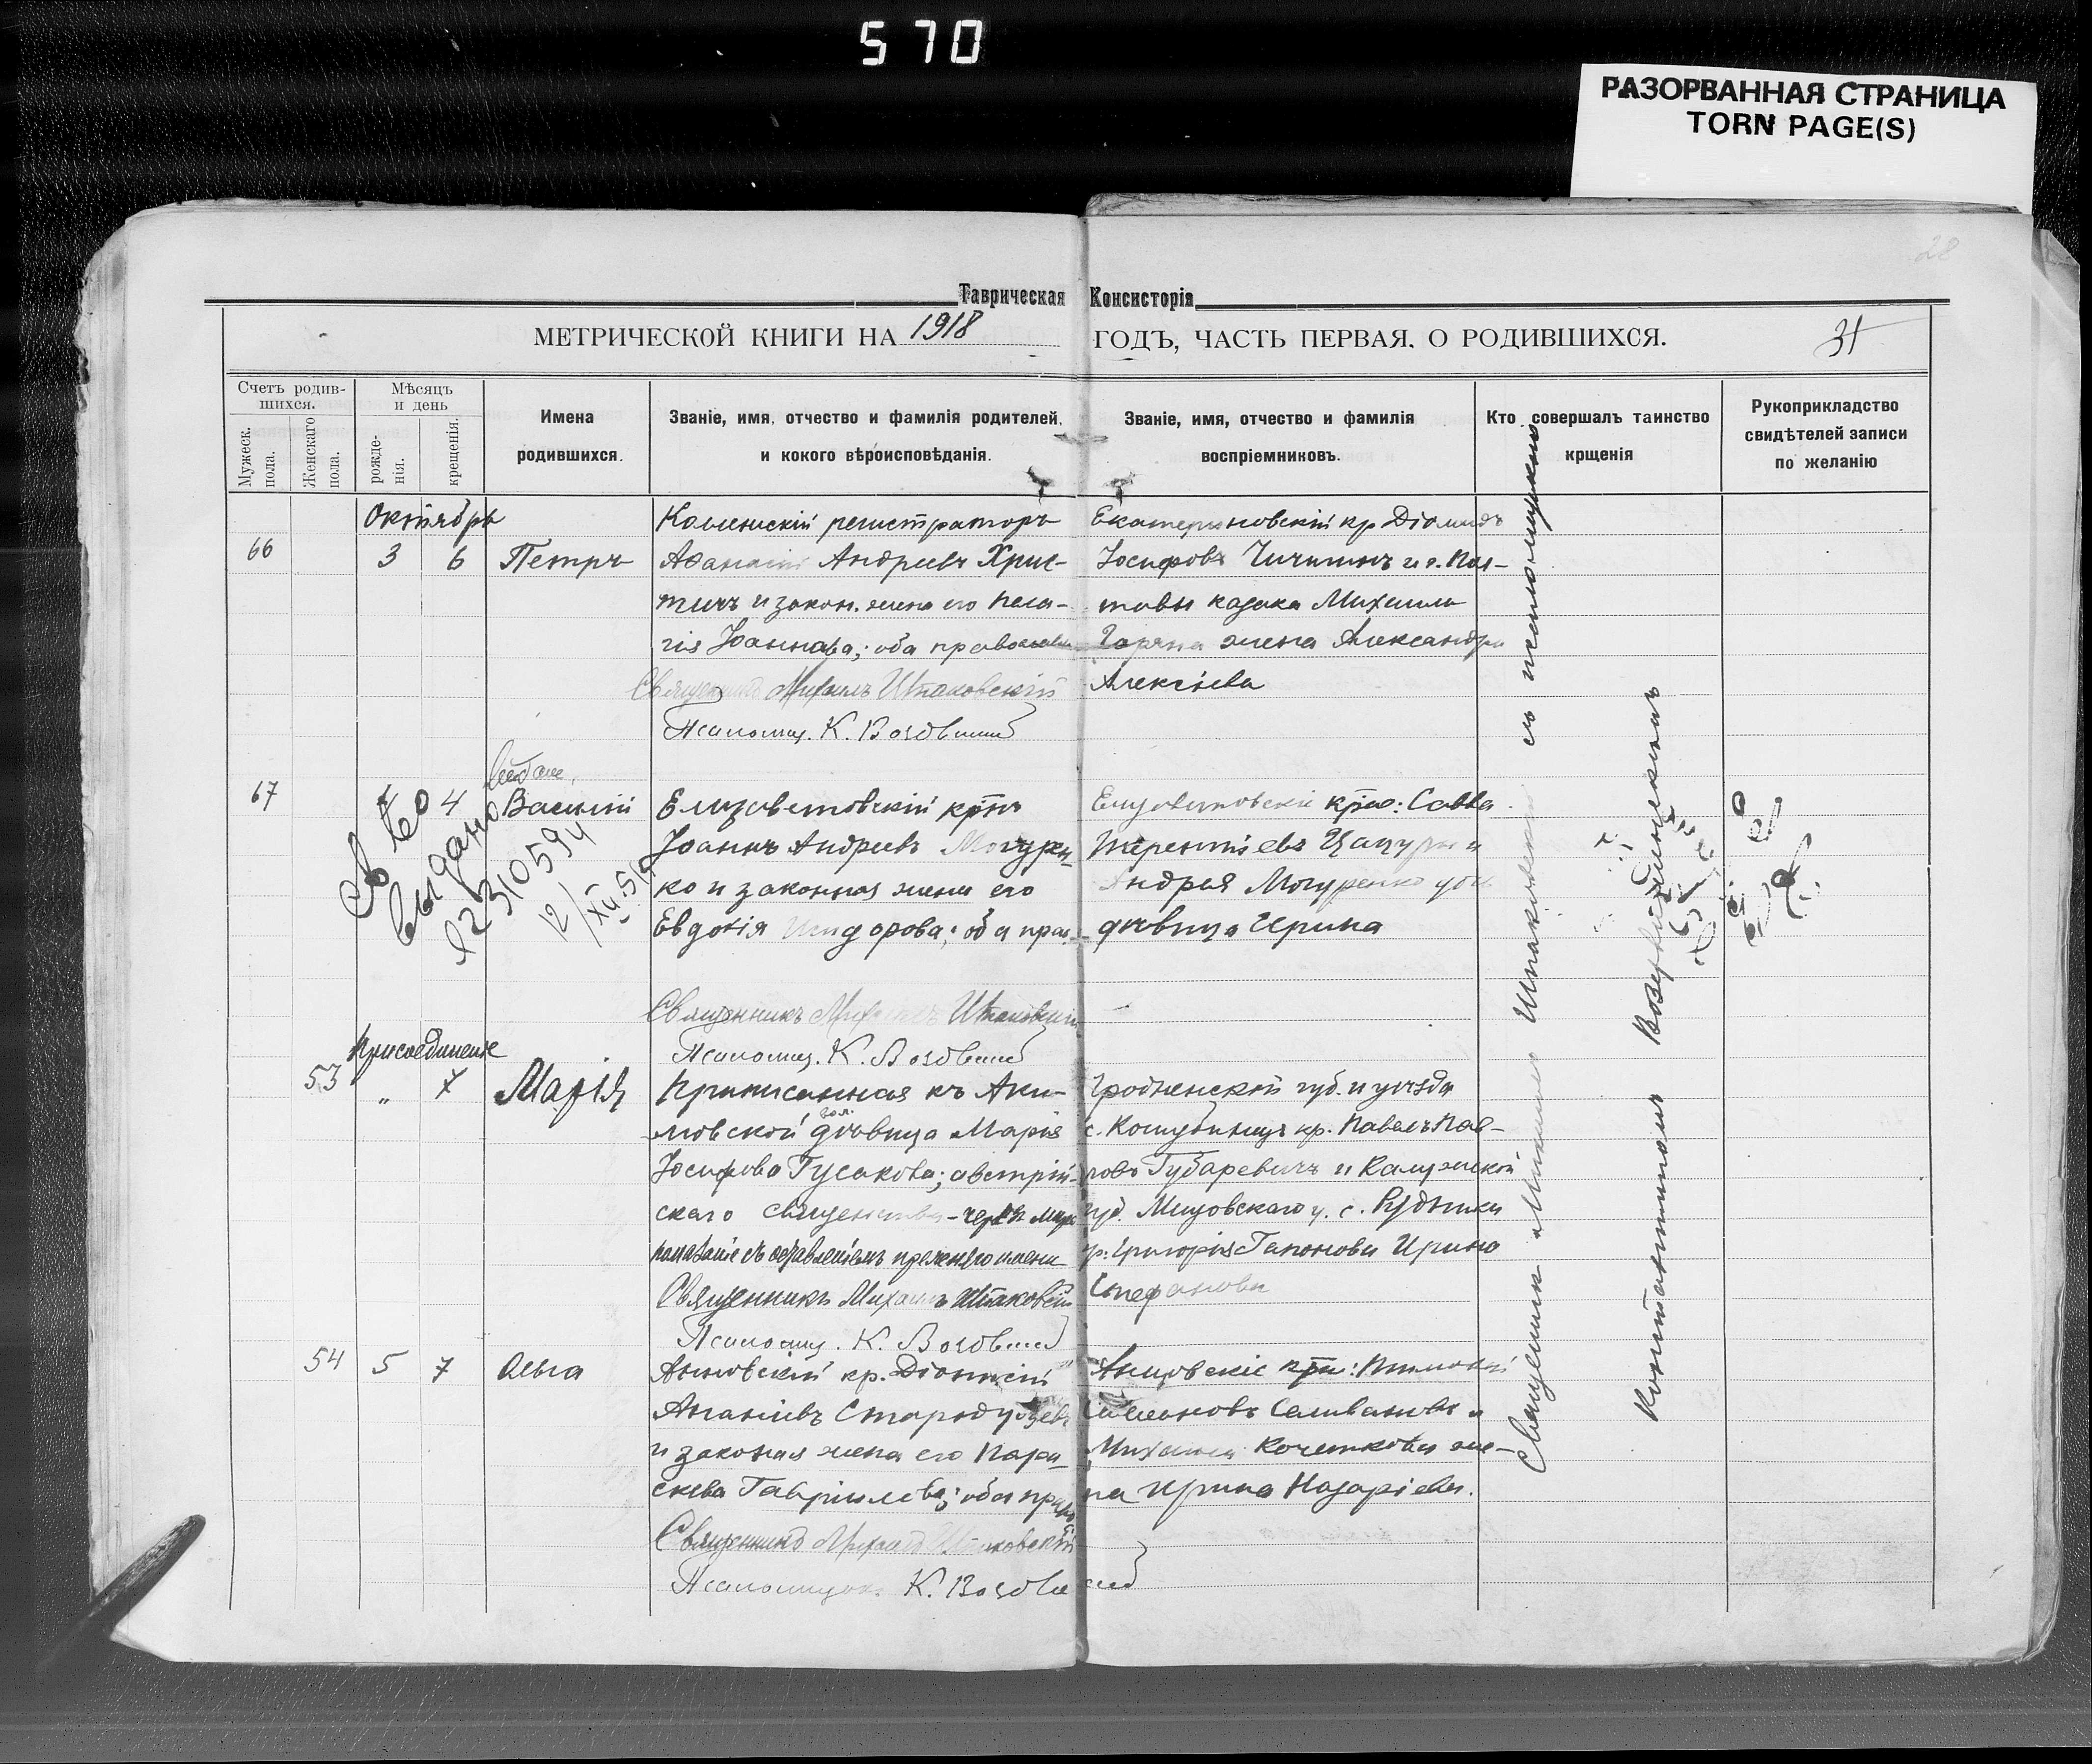 570
РАЗОРВАННАЯ СТРАНИЦА
TORN PAGE(S)
28
Таврическая Консисторія
МЕТРИЧЕСКОЙ КНИГИ НА 1918 ГОДЪ, ЧАСТЬ ПЕРВАЯ, О РОДИВШИХСЯ.
31
Счетъ родив-
шихся.
Мужеск. пола.
Женскаго пола.
Мѣсяцъ
и день
рожде-
нія.
крещенія.
Имена
родившихся.
Званіе, имя, отчество и фамилія родителей,
и кокого вѣроисповѣданія.
Званіе, имя, отчество и фамилія
воспріемниковъ.
Кто совершалъ таинство
крщенія
Рукоприкладство
свидѣтелей записи
по желанію
Октябрь
66 3 6 Петръ
регистраторъ
Афанасій Андреевъ Хрис-
тичъ и закон. жена его Пела-
гія Іоаннова; оба православн
Священникъ Михаилъ Шпаковскій
Псаломщ. К.
Екатериновскій кр Діомидъ
Іосифовъ
тавы казака Михаила
жена Александра
Алексіева
67 4 Василій
Св во
выдано
12/XII.51
Елизаветовскій крнъ
Іоаннъ Андреевъ Могурен-
ко и законная жена его
Евдокія Исидорова; оба прав.
Священникъ Михаилъ Шпаковскій
Псаломщ. К.
Елизаветовскіе крне: Савва
Терентіевъ и
Андрея Могуренко
дѣвица Ирина
Присоединеніе
53 " 7 Марія
Приписанная къ Аки-
мовской вол. дѣвица Марія
Іосифова Гусакова; австрій-
скаго священства - черезъ мѵро
помазаніе съ оставленіемъ прежняго имени
Священникъ Михаилъ Шпаковскій
Псаломщ. К.
Гродненской губ. и уѣзда
с. кр. Павелъ Пав-
ловъ Губаревичъ и Калужской
губ. Мещовскаго у. с. Рудники
кр. Григорія Гапонова Ирина
Стефанова
54 5 7 Ольга
кр. Діонисій
Ананіевъ Стародубцевъ
и законная жена его Пара-
скева Гавріилова; оба прав
Священникъ Михаилъ Шпаковскій
Псаломщикъ К.
Симеоновъ Селивановъ и
Михаила Кочеткова же-
на Ирина Назаріева.
Священник Михаил Шпаковский съ псаломщикомъ
Константиномъ